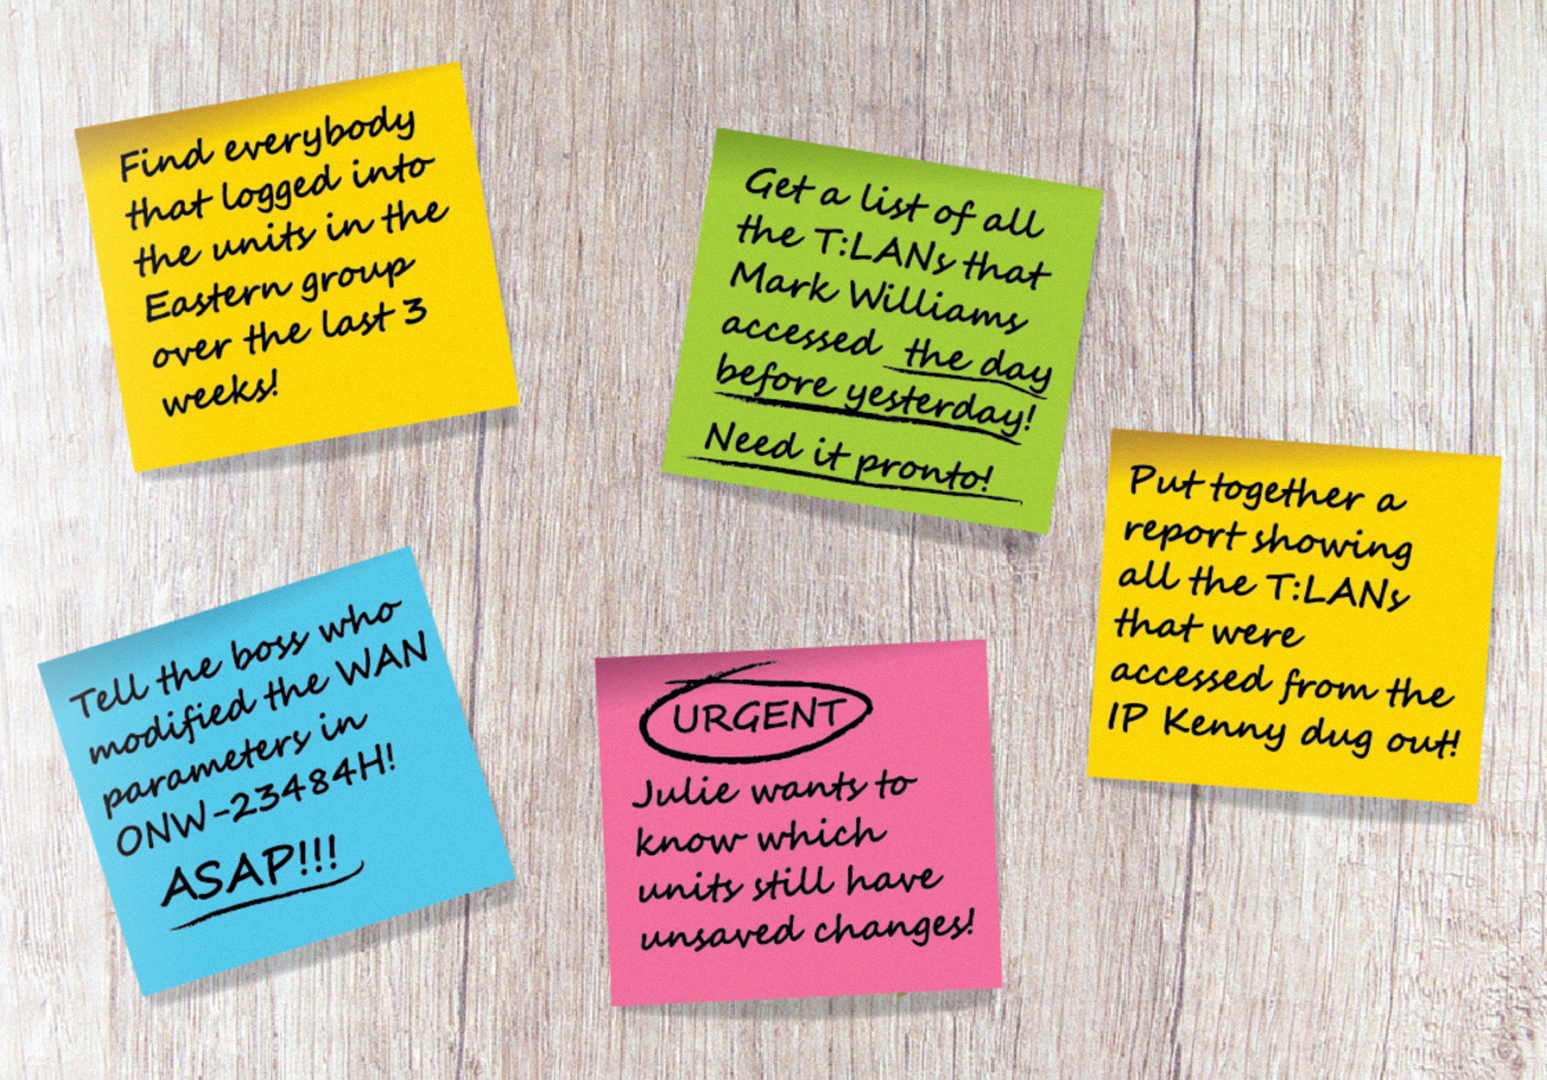 Find everybody
that logged into
the units in the
Eastern group
over the last 3
weeks!
Get a list of all
the T:LANs that
Mark Williams
accessed the day
before yesterday!
Need it pronto!
Put together a
report showing
all the T:LANs
that were
accessed from the
IP Kenny dug out!
Tell the boss who
modified the WAN
parameters in
ONW-23484H!
ASAP!!!
URGENT
Julie wants to
know which
units still have
unsaved changes!